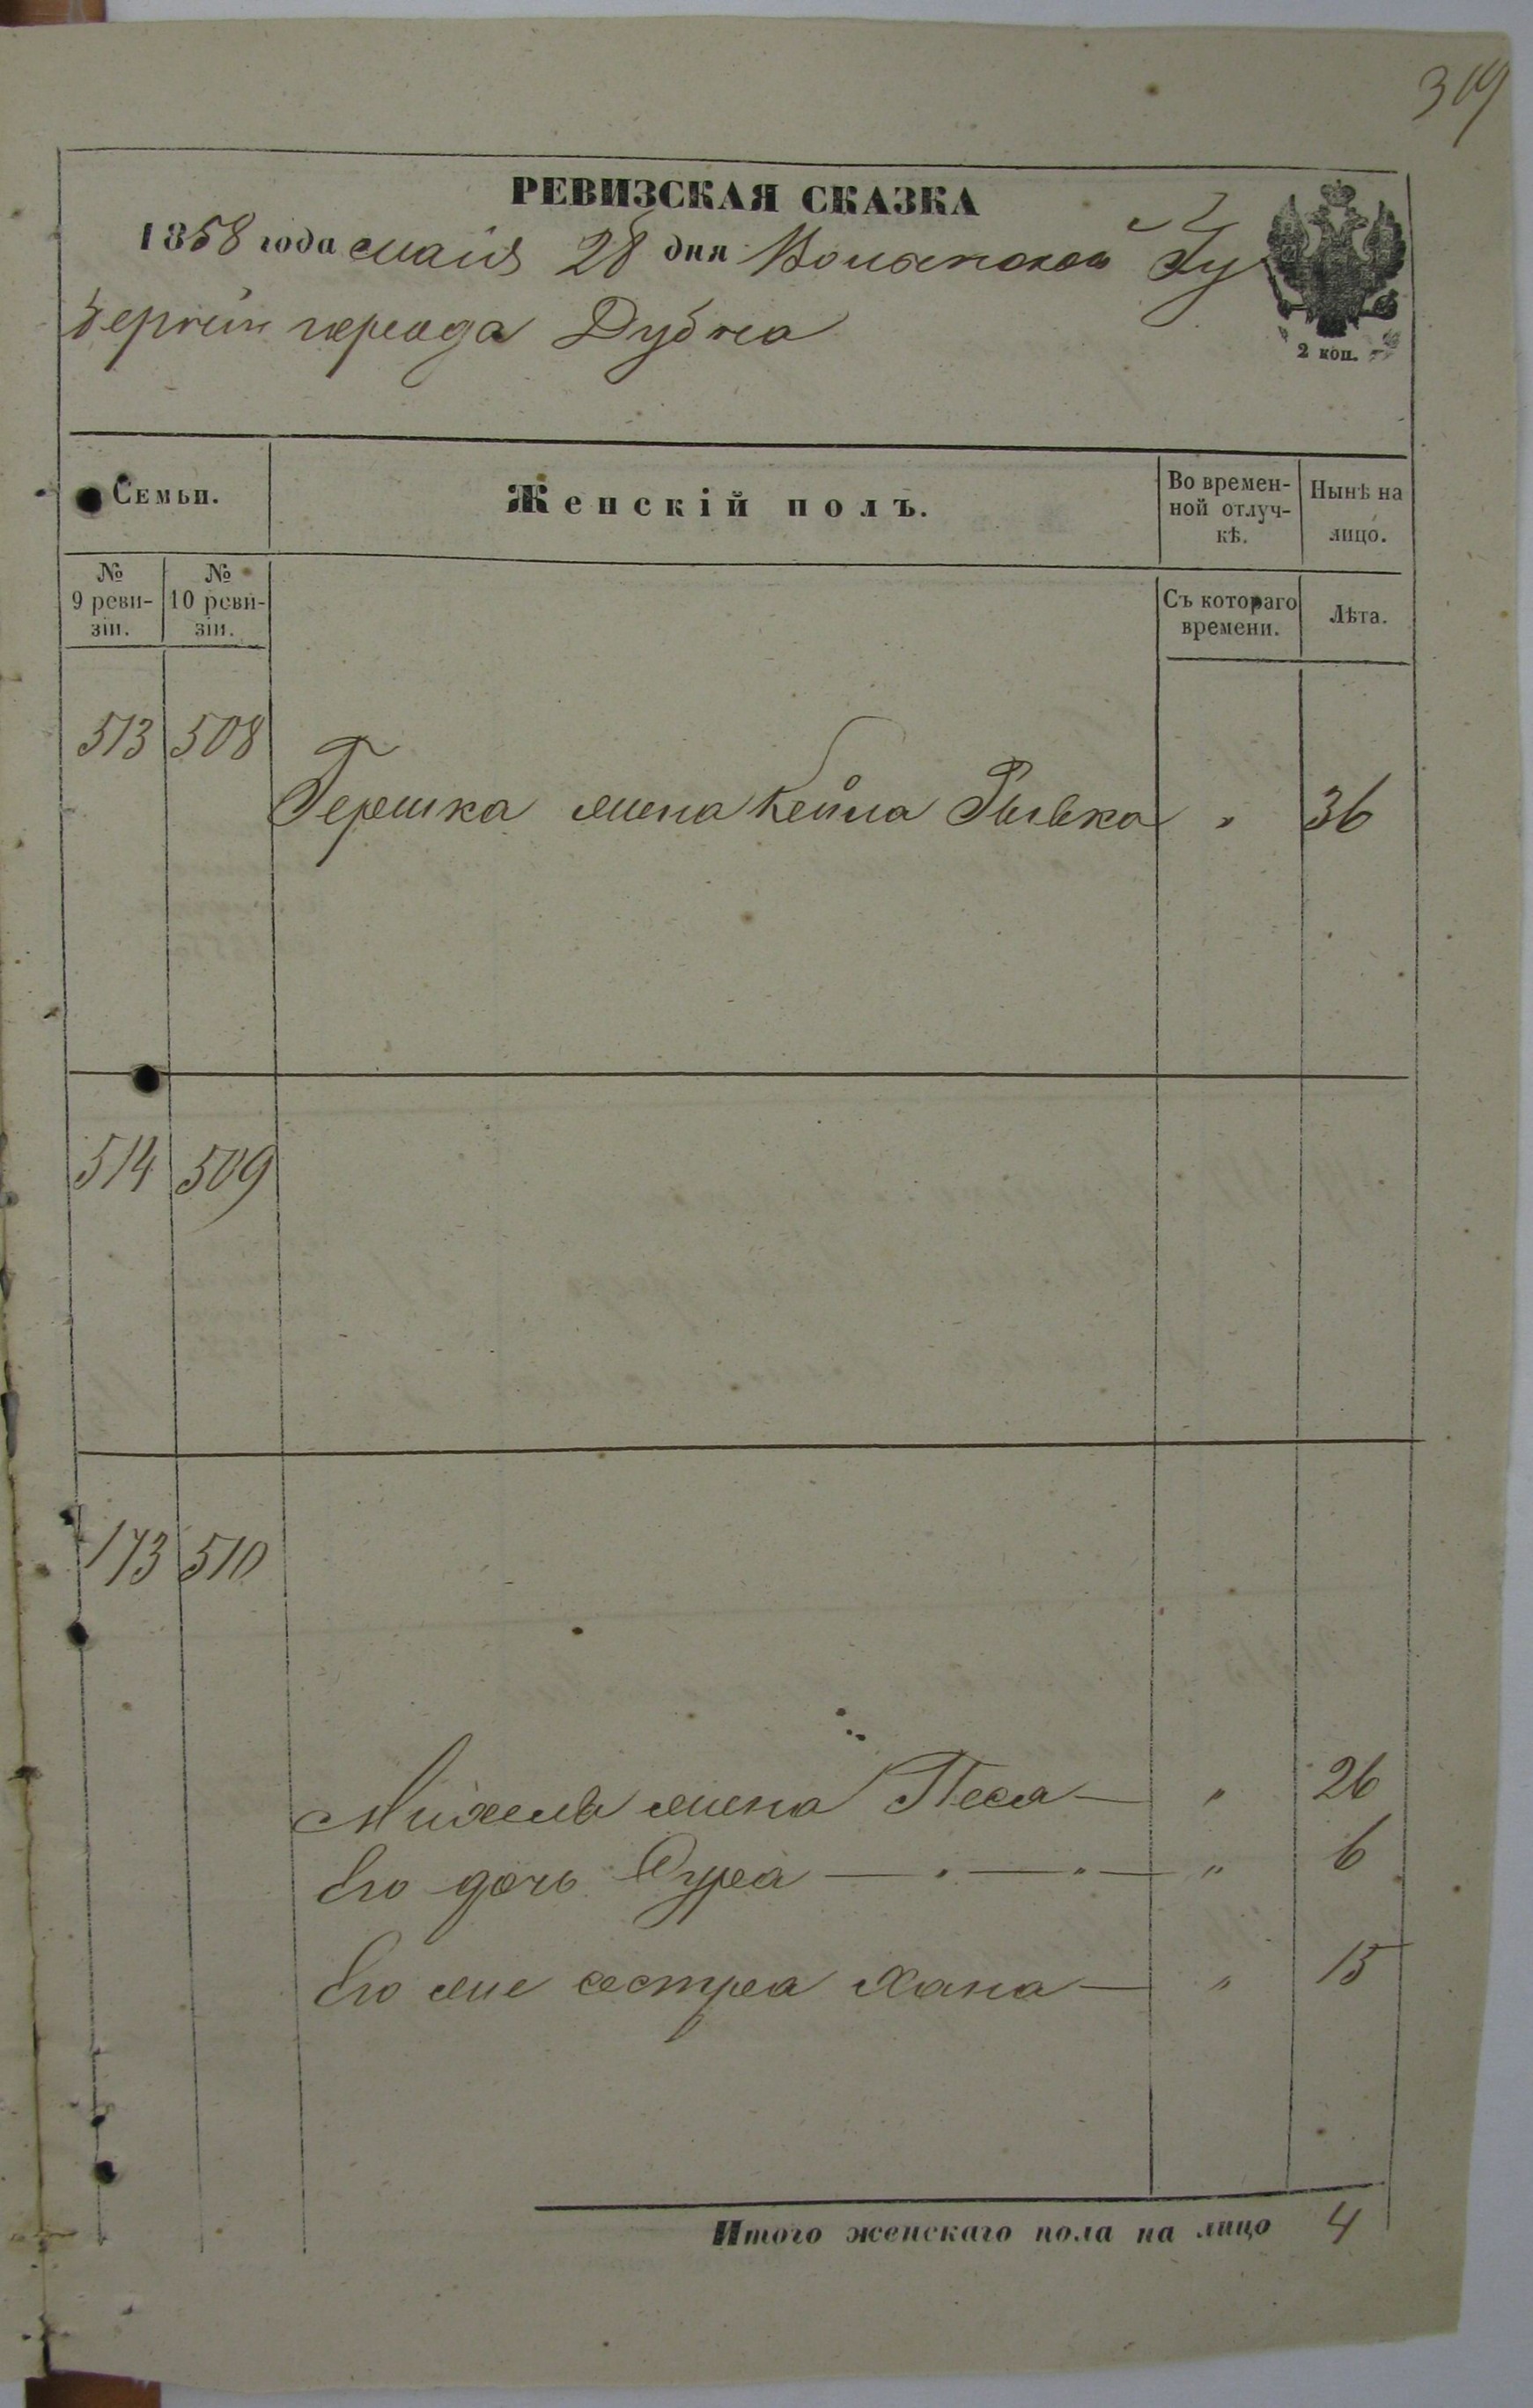 319
РЕВИЗСКАЯ СКАЗКА
1858 года мая 28 дня Волынской Гу
берніи города Дубна
2 коп.
Семьи.
Женскій полъ.
Во времен-
ной отлуч-
кѣ.
Нынѣ на
лицо.
№
9 реви-
зіи.
№
10 реви-
зіи.
Съ котораго
времени.
Лѣта.
513 508
Гершка жена Кейла Рывка " 36
514 509
173 510
Михеля жена Песя — " 26
Его дочь Сура — " — " — " 6
Его же сестра Хана — " 15
Итого женскаго пола на лицо 4